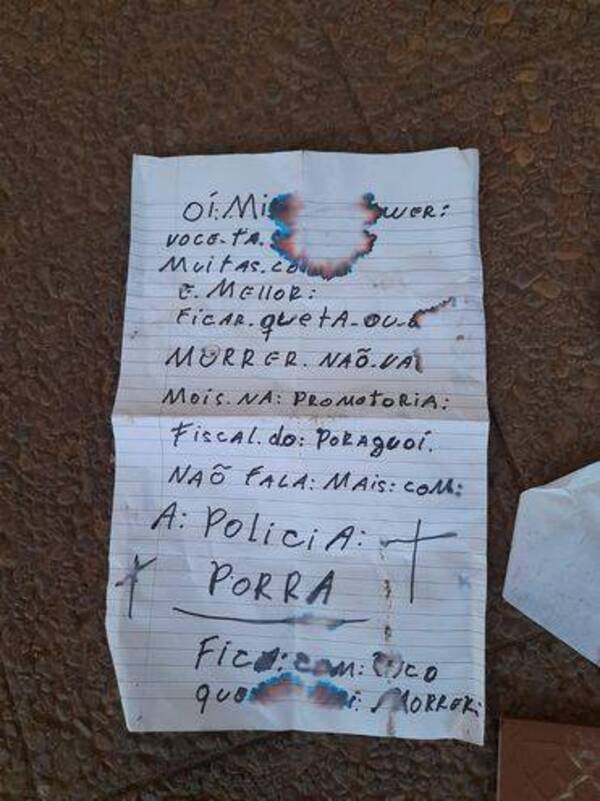 OÍ: Mi
VOCE-TA.
MUITAS.
E. MELLOR:
FICAR. QUETA-OU-
MORRER. NAÕ.VA
MOIS. NA: PROMOTORIA:
FISCAL. do: PORAGUOÍ.
NAÕ FALA: MAIS: COM:
A: POLICIA:
PORRA
FICA: COM:
QUE MORRER: